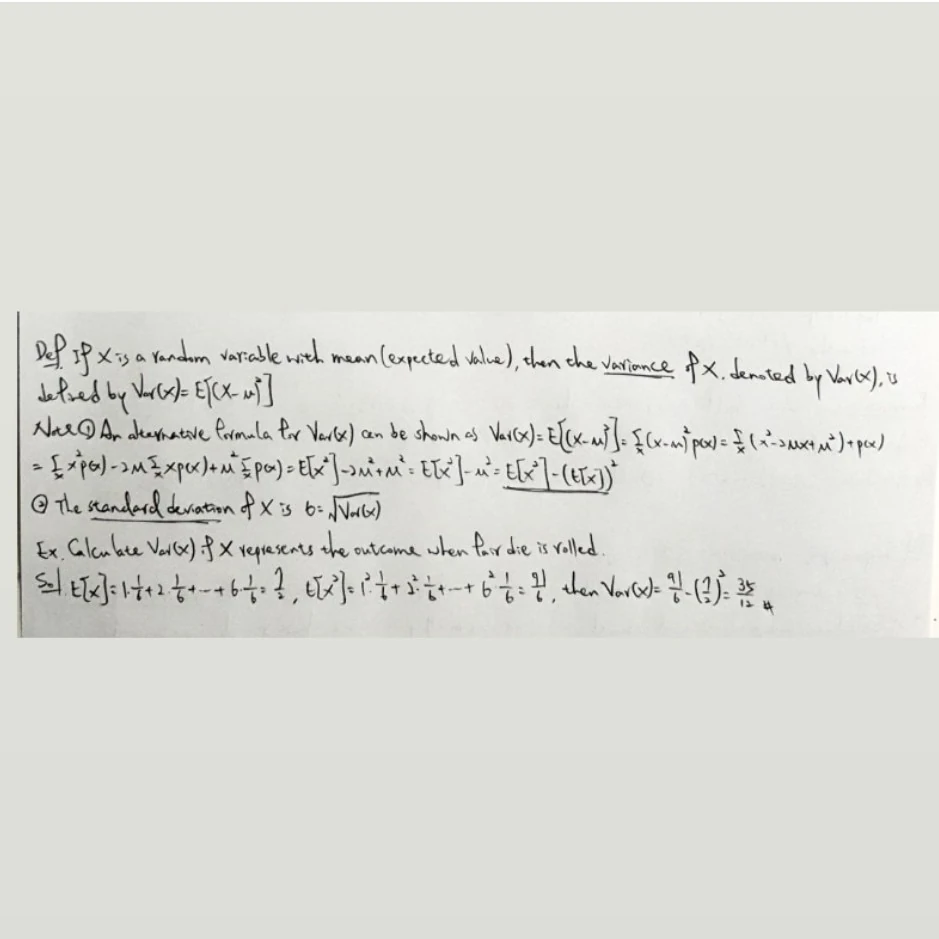 Def If X is a random variable with mean (expected value), then the variance of X. denoted by Var(x), is
defined by Var(x)= E[(X-μ)²]
Note ① An alternative formula for Var(x) can be shown as Var(x)= E[(x-μ)²]= Σₓ(x-μ)²p(x)= Σₓ(x²-2μx+μ²)+p(x)
= Σₓx²p(x)-2μΣₓxp(x)+μ²Σₓp(x)= E[x²]-2μ²+μ²= E[x²]-μ²= E[x²]-(E[x])²
② The standard deviation of X is σ=√Var(x)
Ex. Calculate Var(x) if X represents the outcome when fair die is rolled.
Sol. E[x]= 1·1/6+2·1/6+--+6·1/6= 7/2, E[x²]= 1²·1/6+2²·1/6+--+6²·1/6= 91/6, then Var(x)= 91/6-(7/2)²= 35/12 #